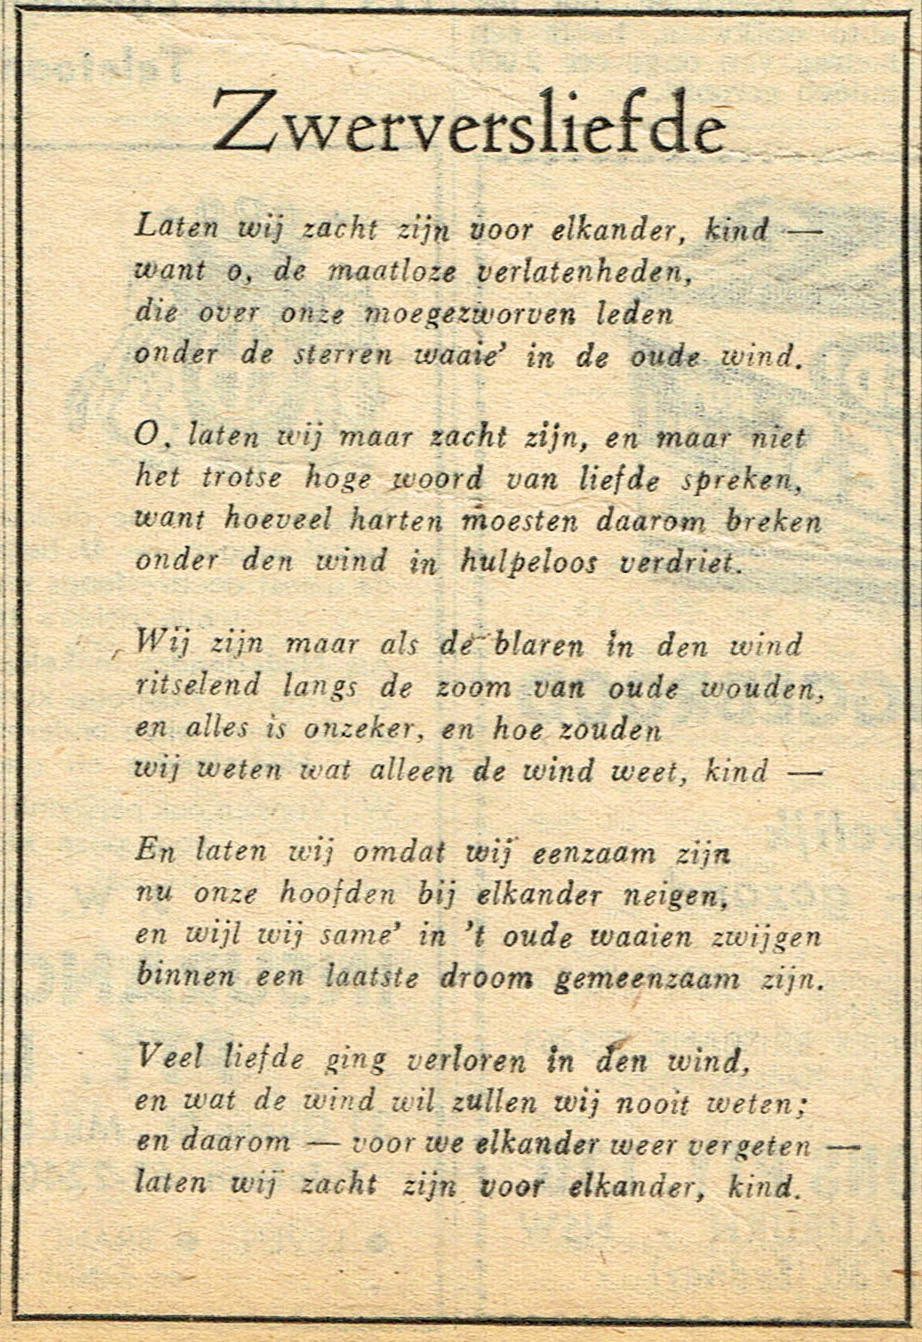 Zwerversliefde
Laten wij zacht zijn voor elkander, kind —
want o, de maatloze verlatenheden,
die over onze moegezworven leden
onder de sterren waaie’ in de oude wind.
O, laten wij maar zacht zijn, en maar niet
het trotse hoge woord van liefde spreken,
want hoeveel harten moesten daarom breken
onder den wind in hulpeloos verdriet.
Wij zijn maar als de blaren in den wind
ritselend langs de zoom van oude wouden,
en alles is onzeker, en hoe zouden
wij weten wat alleen de wind weet, kind —
En laten wij omdat wij eenzaam zijn
nu onze hoofden bij elkander neigen,
en wijl wij same’ in ’t oude waaien zwijgen
binnen een laatste droom gemeenzaam zijn.
Veel liefde ging verloren in den wind,
en wat de wind wil zullen wij nooit weten;
en daarom — voor we elkander weer vergeten —
laten wij zacht zijn voor elkander, kind.